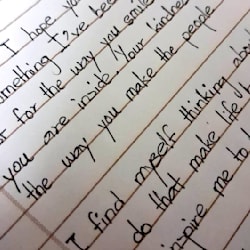 I hope you
something I've bee
for the way you smile
you are inside. Your kindne
the way you make the people
I find myself thinking abou
do that make life
inspire me to